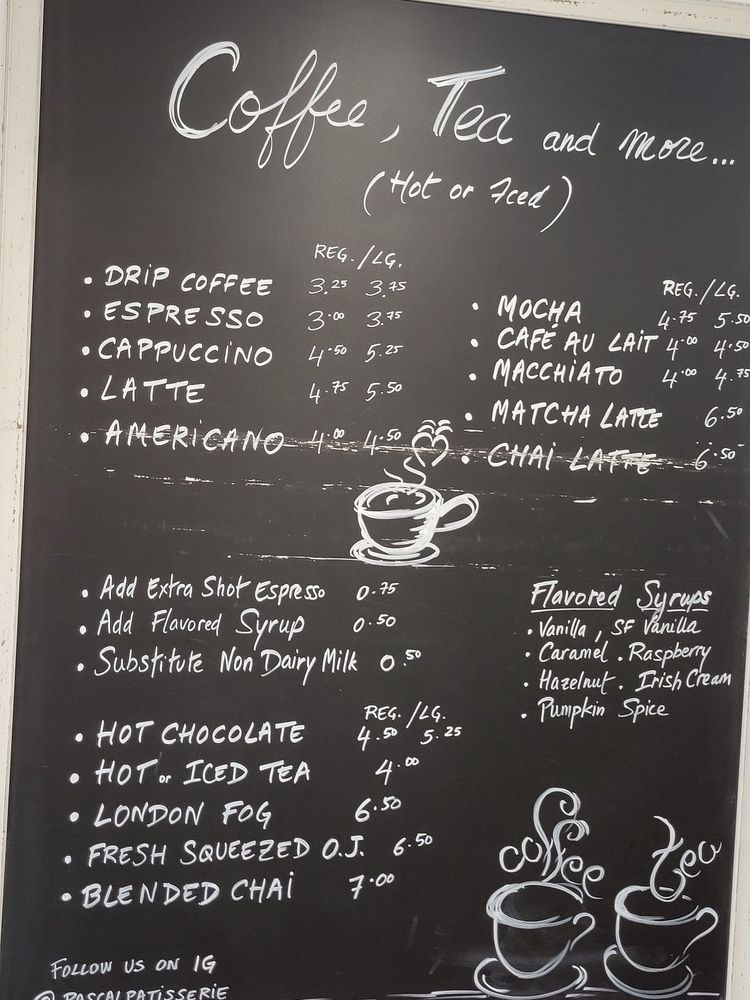 Coffee, Tea and more...
(Hot or Iced)
REG. / LG.
• DRIP COFFEE 3.25 3.75
• ESPRESSO 3.00 3.75
• CAPPUCCINO 4.50 5.25
• LATTE 4.75 5.50
• AMERICANO 4.00 4.50
REG. / LG.
• MOCHA 4.75 5.50
• CAFÉ AU LAIT 4.00 4.50
• MACCHIATO 4.00 4.75
• MATCHA LATTE 6.50
• CHAI LATTE 6.50
• Add Extra Shot Espresso 0.75
• Add Flavored Syrup 0.50
• Substitute Non Dairy Milk 0.50
Flavored Syrups
• Vanilla, SF Vanilla
• Caramel • Raspberry
• Hazelnut • Irish Cream
• Pumpkin Spice
REG. / LG.
• HOT CHOCOLATE 4.50 5.25
• HOT or ICED TEA 4.00
• LONDON FOG 6.50
• FRESH SQUEEZED O.J. 6.50
• BLENDED CHAI 7.00
coffee
tea
FOLLOW US ON IG
@ PASCALPATISSERIE